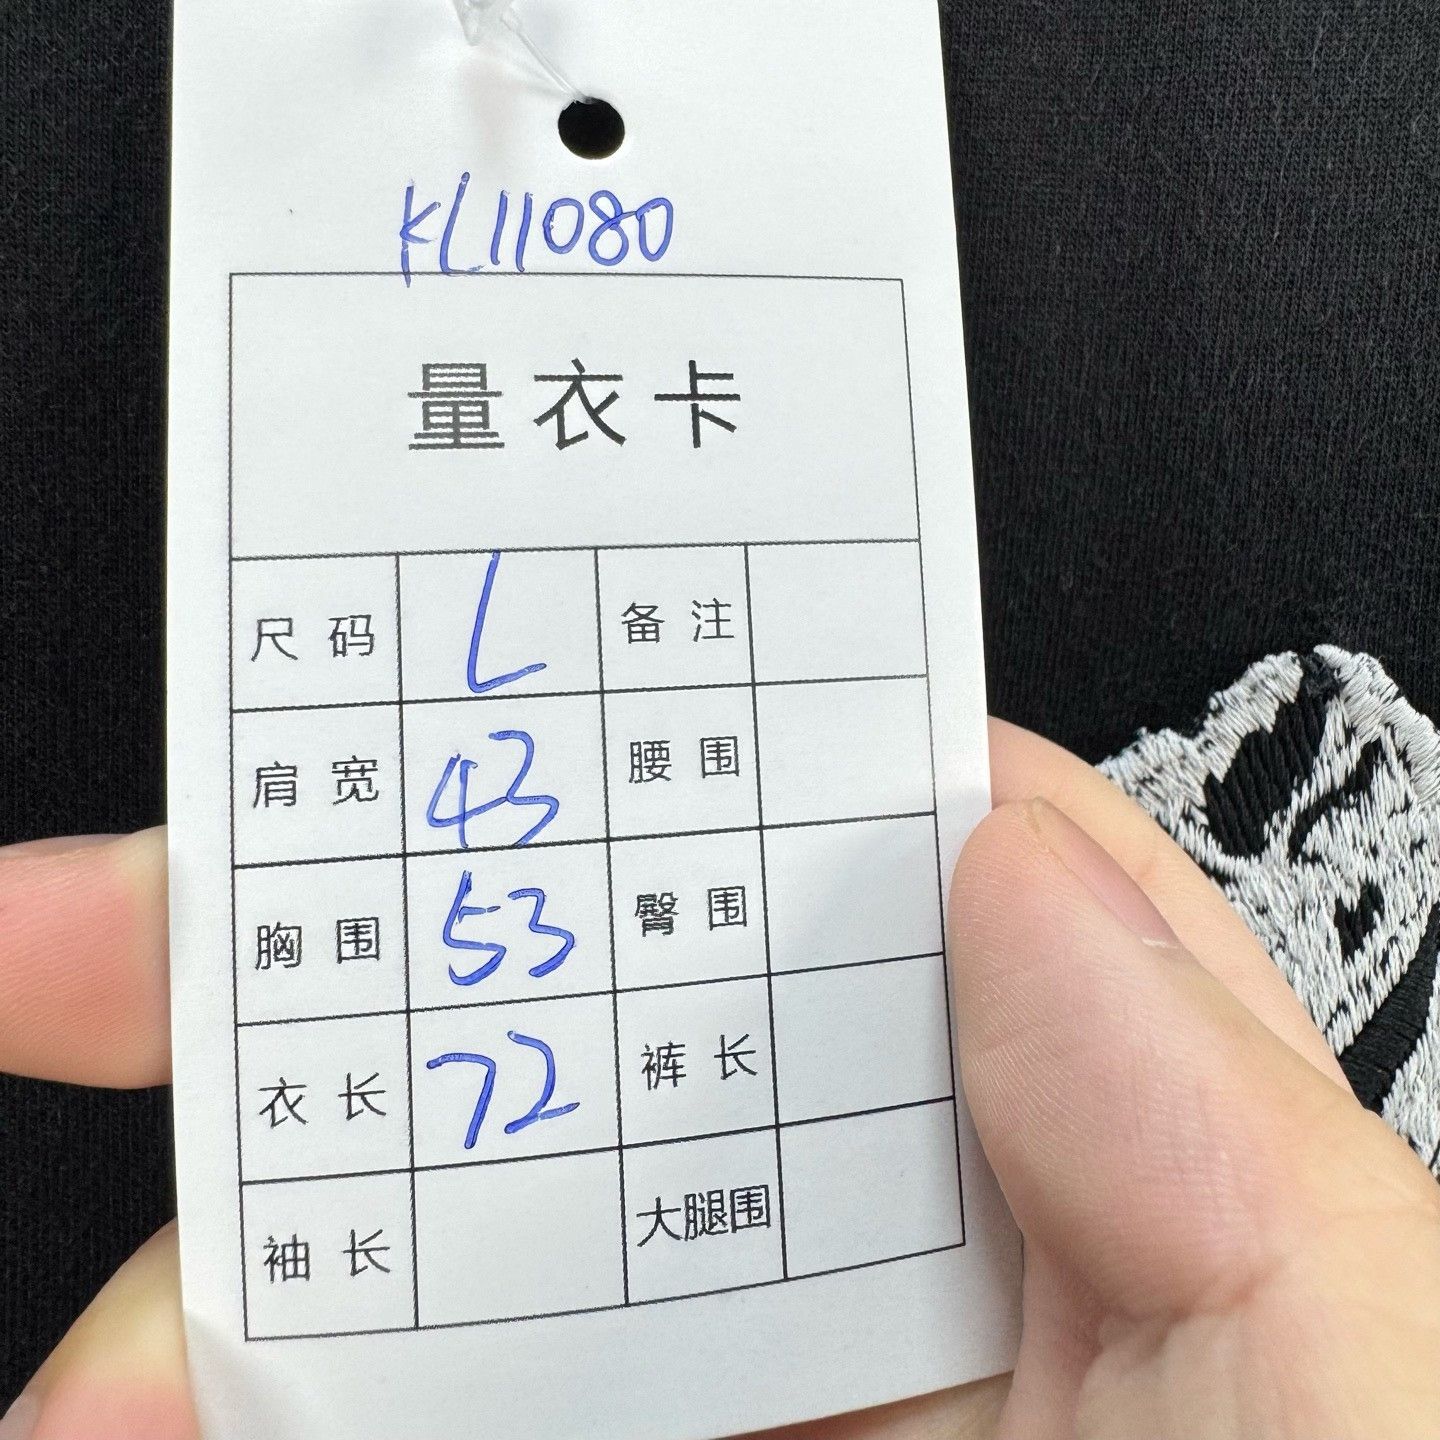 KL11080
量衣卡
尺码 L 备注
肩宽 43 腰围
胸围 53 臀围
衣长 72 裤长
袖长 大腿围